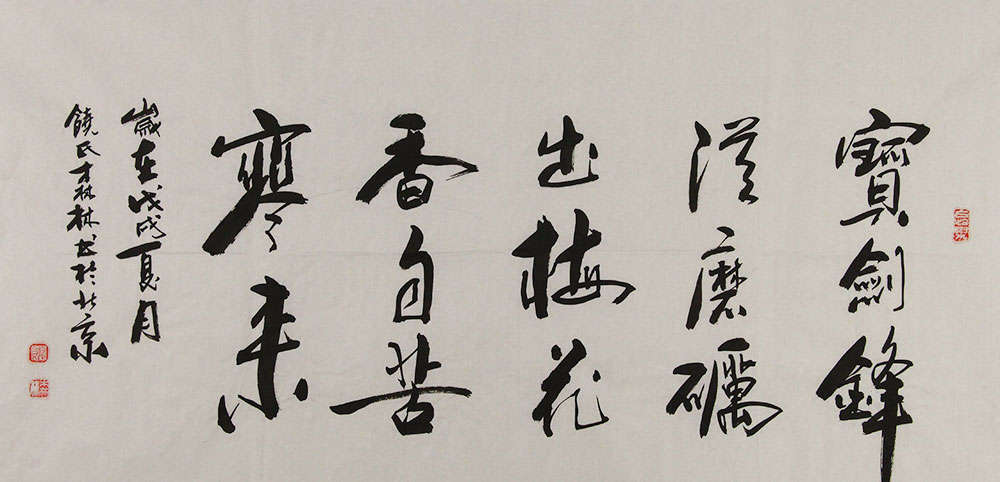 寶劍鋒
從磨礪
出梅花
香自苦
寒來
歲在戊戌夏月
饒氏才森林書於北京